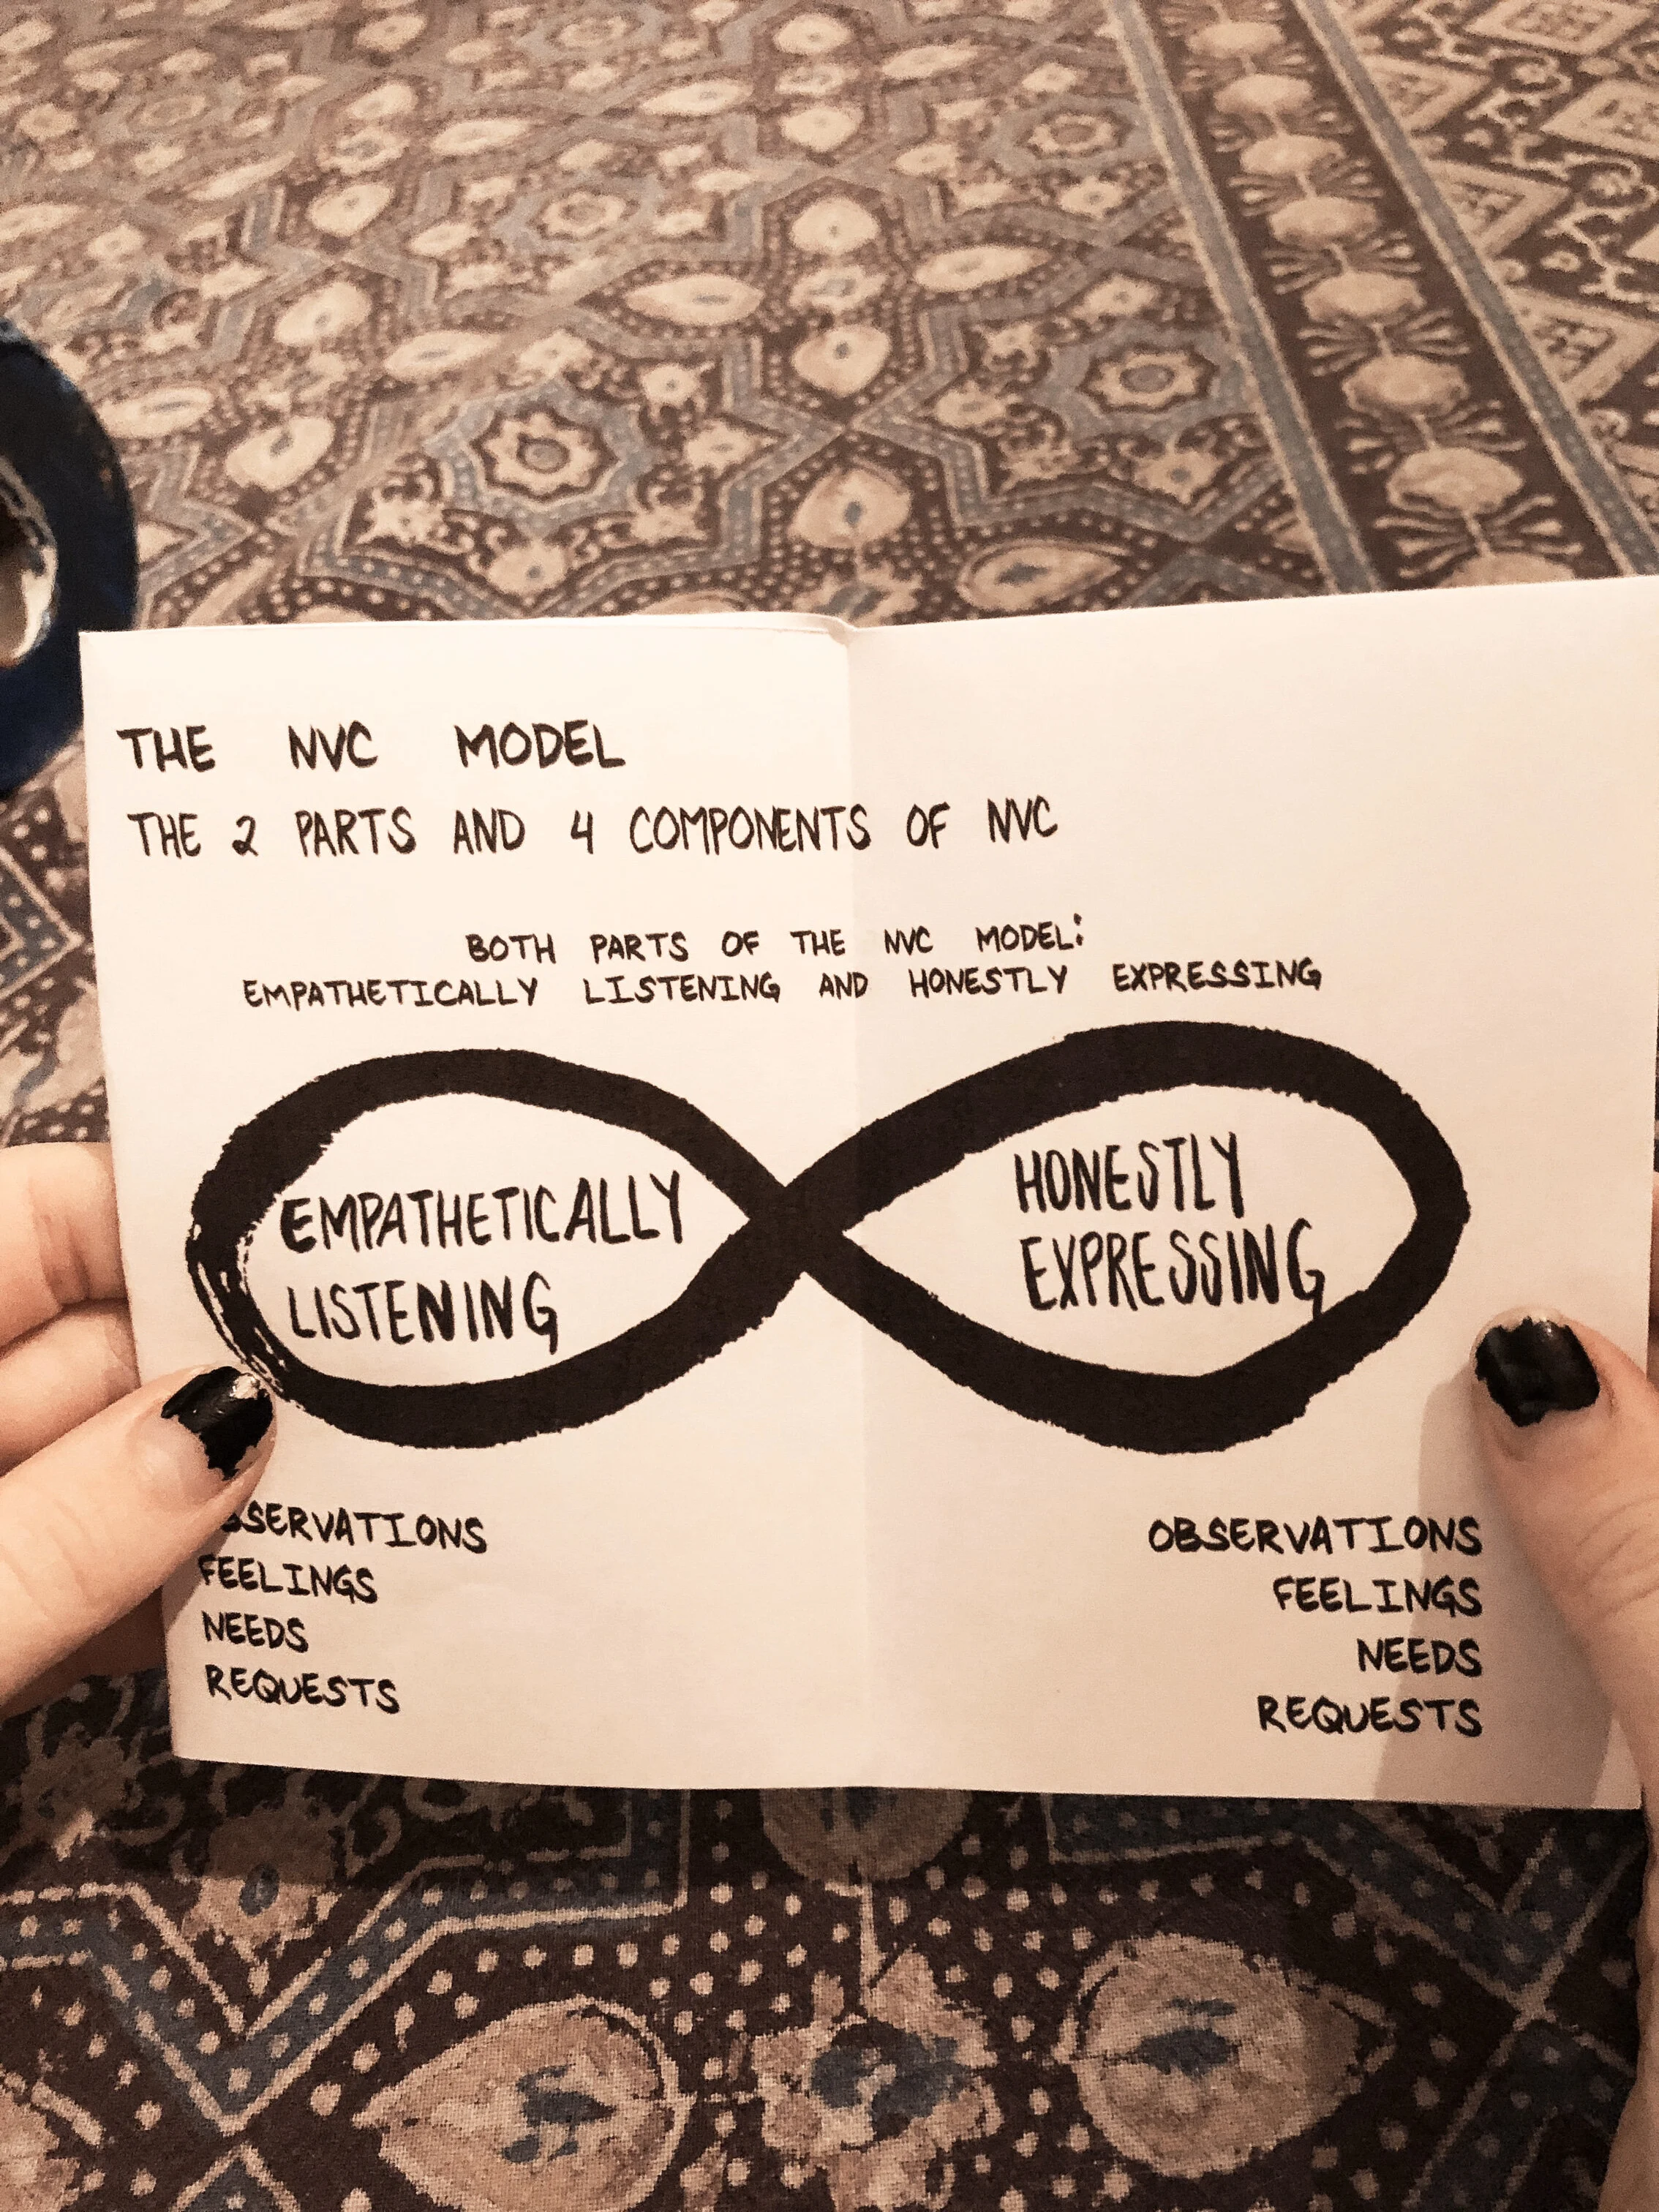 THE NVC MODEL
THE 2 PARTS AND 4 COMPONENTS OF NVC
BOTH PARTS OF THE NVC MODEL:
EMPATHETICALLY LISTENING AND HONESTLY EXPRESSING
EMPATHETICALLY
LISTENING
HONESTLY
EXPRESSING
OBSERVATIONS
FEELINGS
NEEDS
REQUESTS
OBSERVATIONS
FEELINGS
NEEDS
REQUESTS